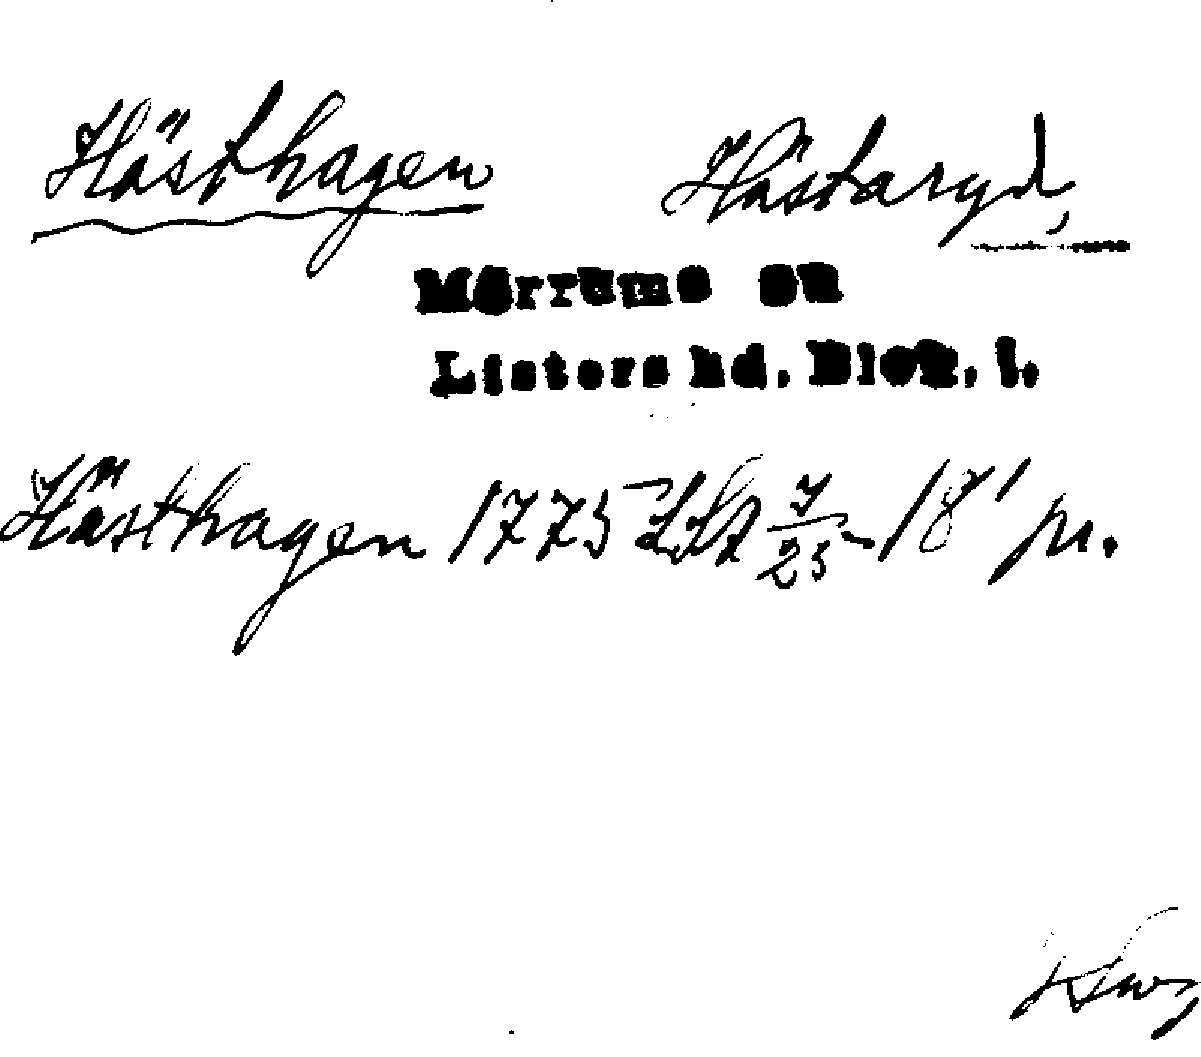 Hästhagen Hästaryd,
Mörrums sn
Listers hd. Blek. l.
Hästhagen 1775 7/25 - 18' pr.